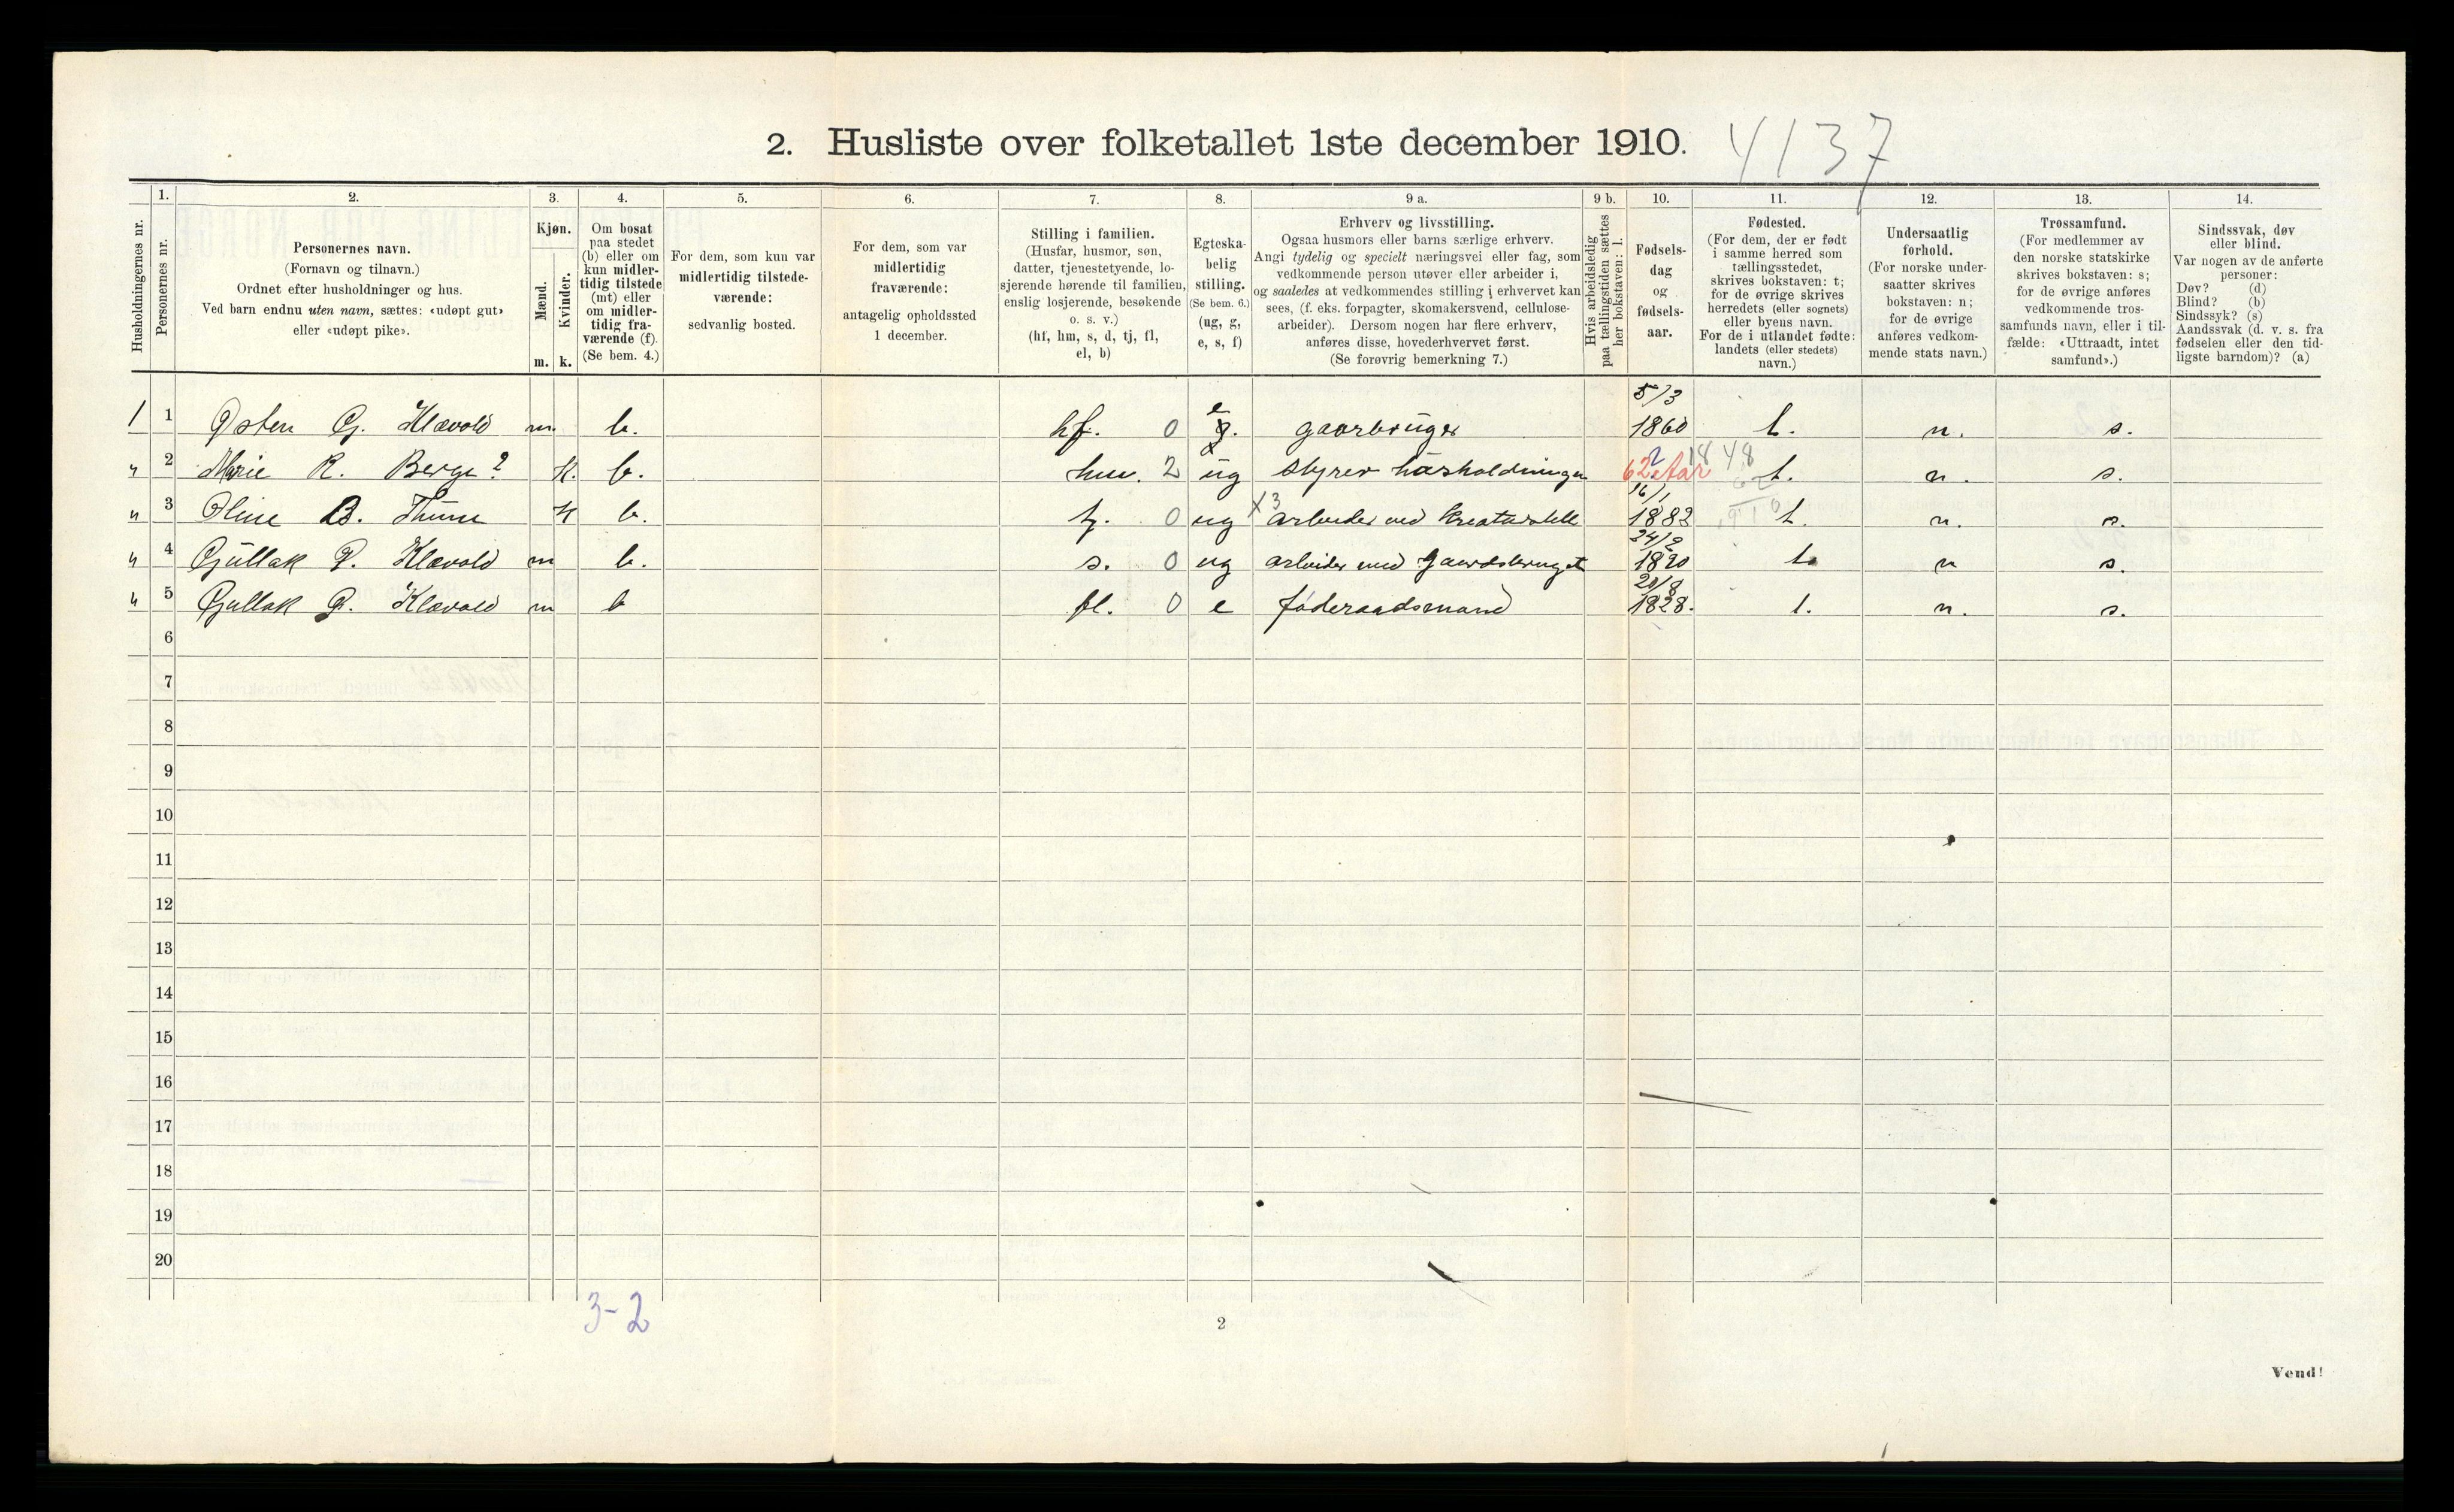 2. Husliste over folketallet 1ste december 1910. 4137
1. 2. 3. 4. 5. 6. 7. 8. 9 a. 9 b. 10. 11. 12. 13. 14.
Husholdningernes nr.
Personernes nr.
Personernes navn.
(Fornavn og tilnavn.)
Ordnet efter husholdninger og hus.
Ved barn endnu uten navn, sættes: «udøpt gut»
eller «udøpt pike».
Kjøn.
Mænd.
Kvinder.
m. k.
Om bosat
paa stedet
(b) eller om
kun midler-
tidig tilstede
(mt) eller
om midler-
tidig fra-
værende (f).
(Se bem. 4.)
For dem, som kun var
midlertidig tilstede-
værende:
sedvanlig bosted.
For dem, som var
midlertidig
fraværende:
antagelig opholdssted
1 december.
Stilling i familien.
(Husfar, husmor, søn,
datter, tjenestetyende, lo-
sjerende hørende til familien,
enslig losjerende, besøkende
o. s. v.)
(hf, hm, s, d, tj, fl,
el, b)
Egteska-
belig
stilling.
(Se bem. 6.)
(ug, g,
e, s, f)
Erhverv og livsstilling.
Ogsaa husmors eller barns særlige erhverv.
Angi tydelig og specielt næringsvei eller fag, som
vedkommende person utøver eller arbeider i,
og saaledes at vedkommendes stilling i erhvervet kan
sees, (f. eks. forpagter, skomakersvend, cellulose-
arbeider). Dersom nogen har flere erhverv,
anføres disse, hovederhvervet først.
(Se forøvrig bemerkning 7.)
Hvis arbeidsledig
paa tællingstiden sættes
her bokstaven: l.
Fødsels-
dag
og
fødsels-
aar.
Fødested.
(For dem, der er født
i samme herred som
tællingsstedet,
skrives bokstaven: t;
for de øvrige skrives
herredets (eller sognets)
eller byens navn.
For de i utlandet fødte:
landets (eller stedets)
navn.)
Undersaatlig
forhold.
(For norske under-
saatter skrives
bokstaven: n;
for de øvrige
anføres vedkom-
mende stats navn.)
Trossamfund.
(For medlemmer av
den norske statskirke
skrives bokstaven: s;
for de øvrige anføres
vedkommende tros-
samfunds navn, eller i til-
fælde: «Uttraadt, intet
samfund».)
Sindssvak, døv
eller blind.
Var nogen av de anførte
personer:
Døv? (d)
Blind? (b)
Sindssyk? (s)
Aandssvak (d. v. s. fra
fødselen eller den tid-
ligste barndom)? (a)
5/3
1 1 Østen G. Klævold m b. hf. 0 e g. gaarbruger 1860 t. n. s.
" 2 Marie R. Berge? K. b. 2 ug styrer husholdningen 62 Aar 1848 t. n. s.
16/1
" 3 Oline B. K b. tj. 0 ug X3 arbeider ved kreaturstell 1882 t. n. s.
24/2
" 4 Gullak Ø. Klævold m b. s. 0 ug arbeider med gaardsbruget 1890 t. n s.
20/8
" 5 Gullak Klævold m b fl. 0 e føderaadsmand 1828. t. n. s.
6
7
8
9
10
11
12
13
14
15
16
17
18
19
20
3-2
2
Vend!